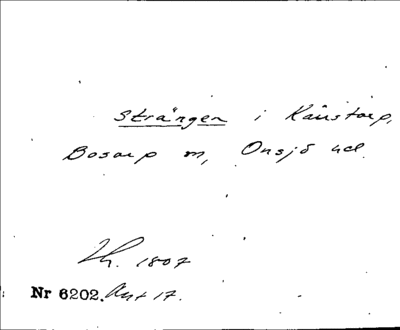 Strängen i Kånstorp,
Bosarp m, Onsjö hd.
Lh. 1807
Nr 6202. Ant 17.